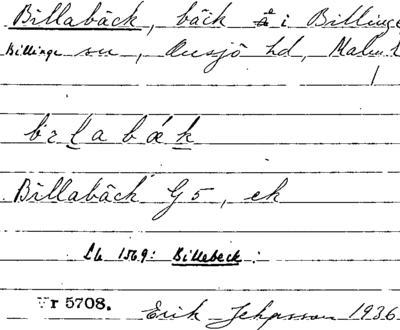 Billabäck, bäck å i Billinge
Billinge sn, Onsjö hd, Malm
bɪlabäk
Billabäck G5, ek
Lb 1569: Billebeck.
Nr 5708. Erik 1936